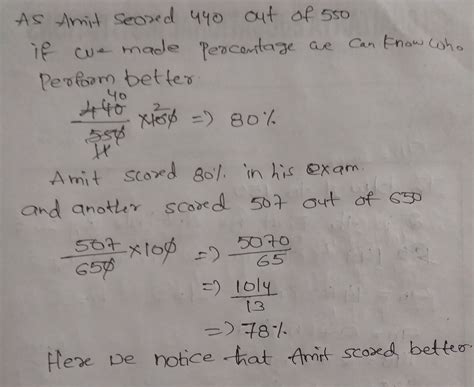 As Amit Scored 440 out of 550
if we made Percentage we can know who
Perform better
440/550 × 100 => 80%
40 11 2
Amit scored 80% in his exam.
and another scored 507 out of 650
507/650 × 100 => 5070/65
=> 1014/13
=> 78%
Here we notice that Amit scored better.